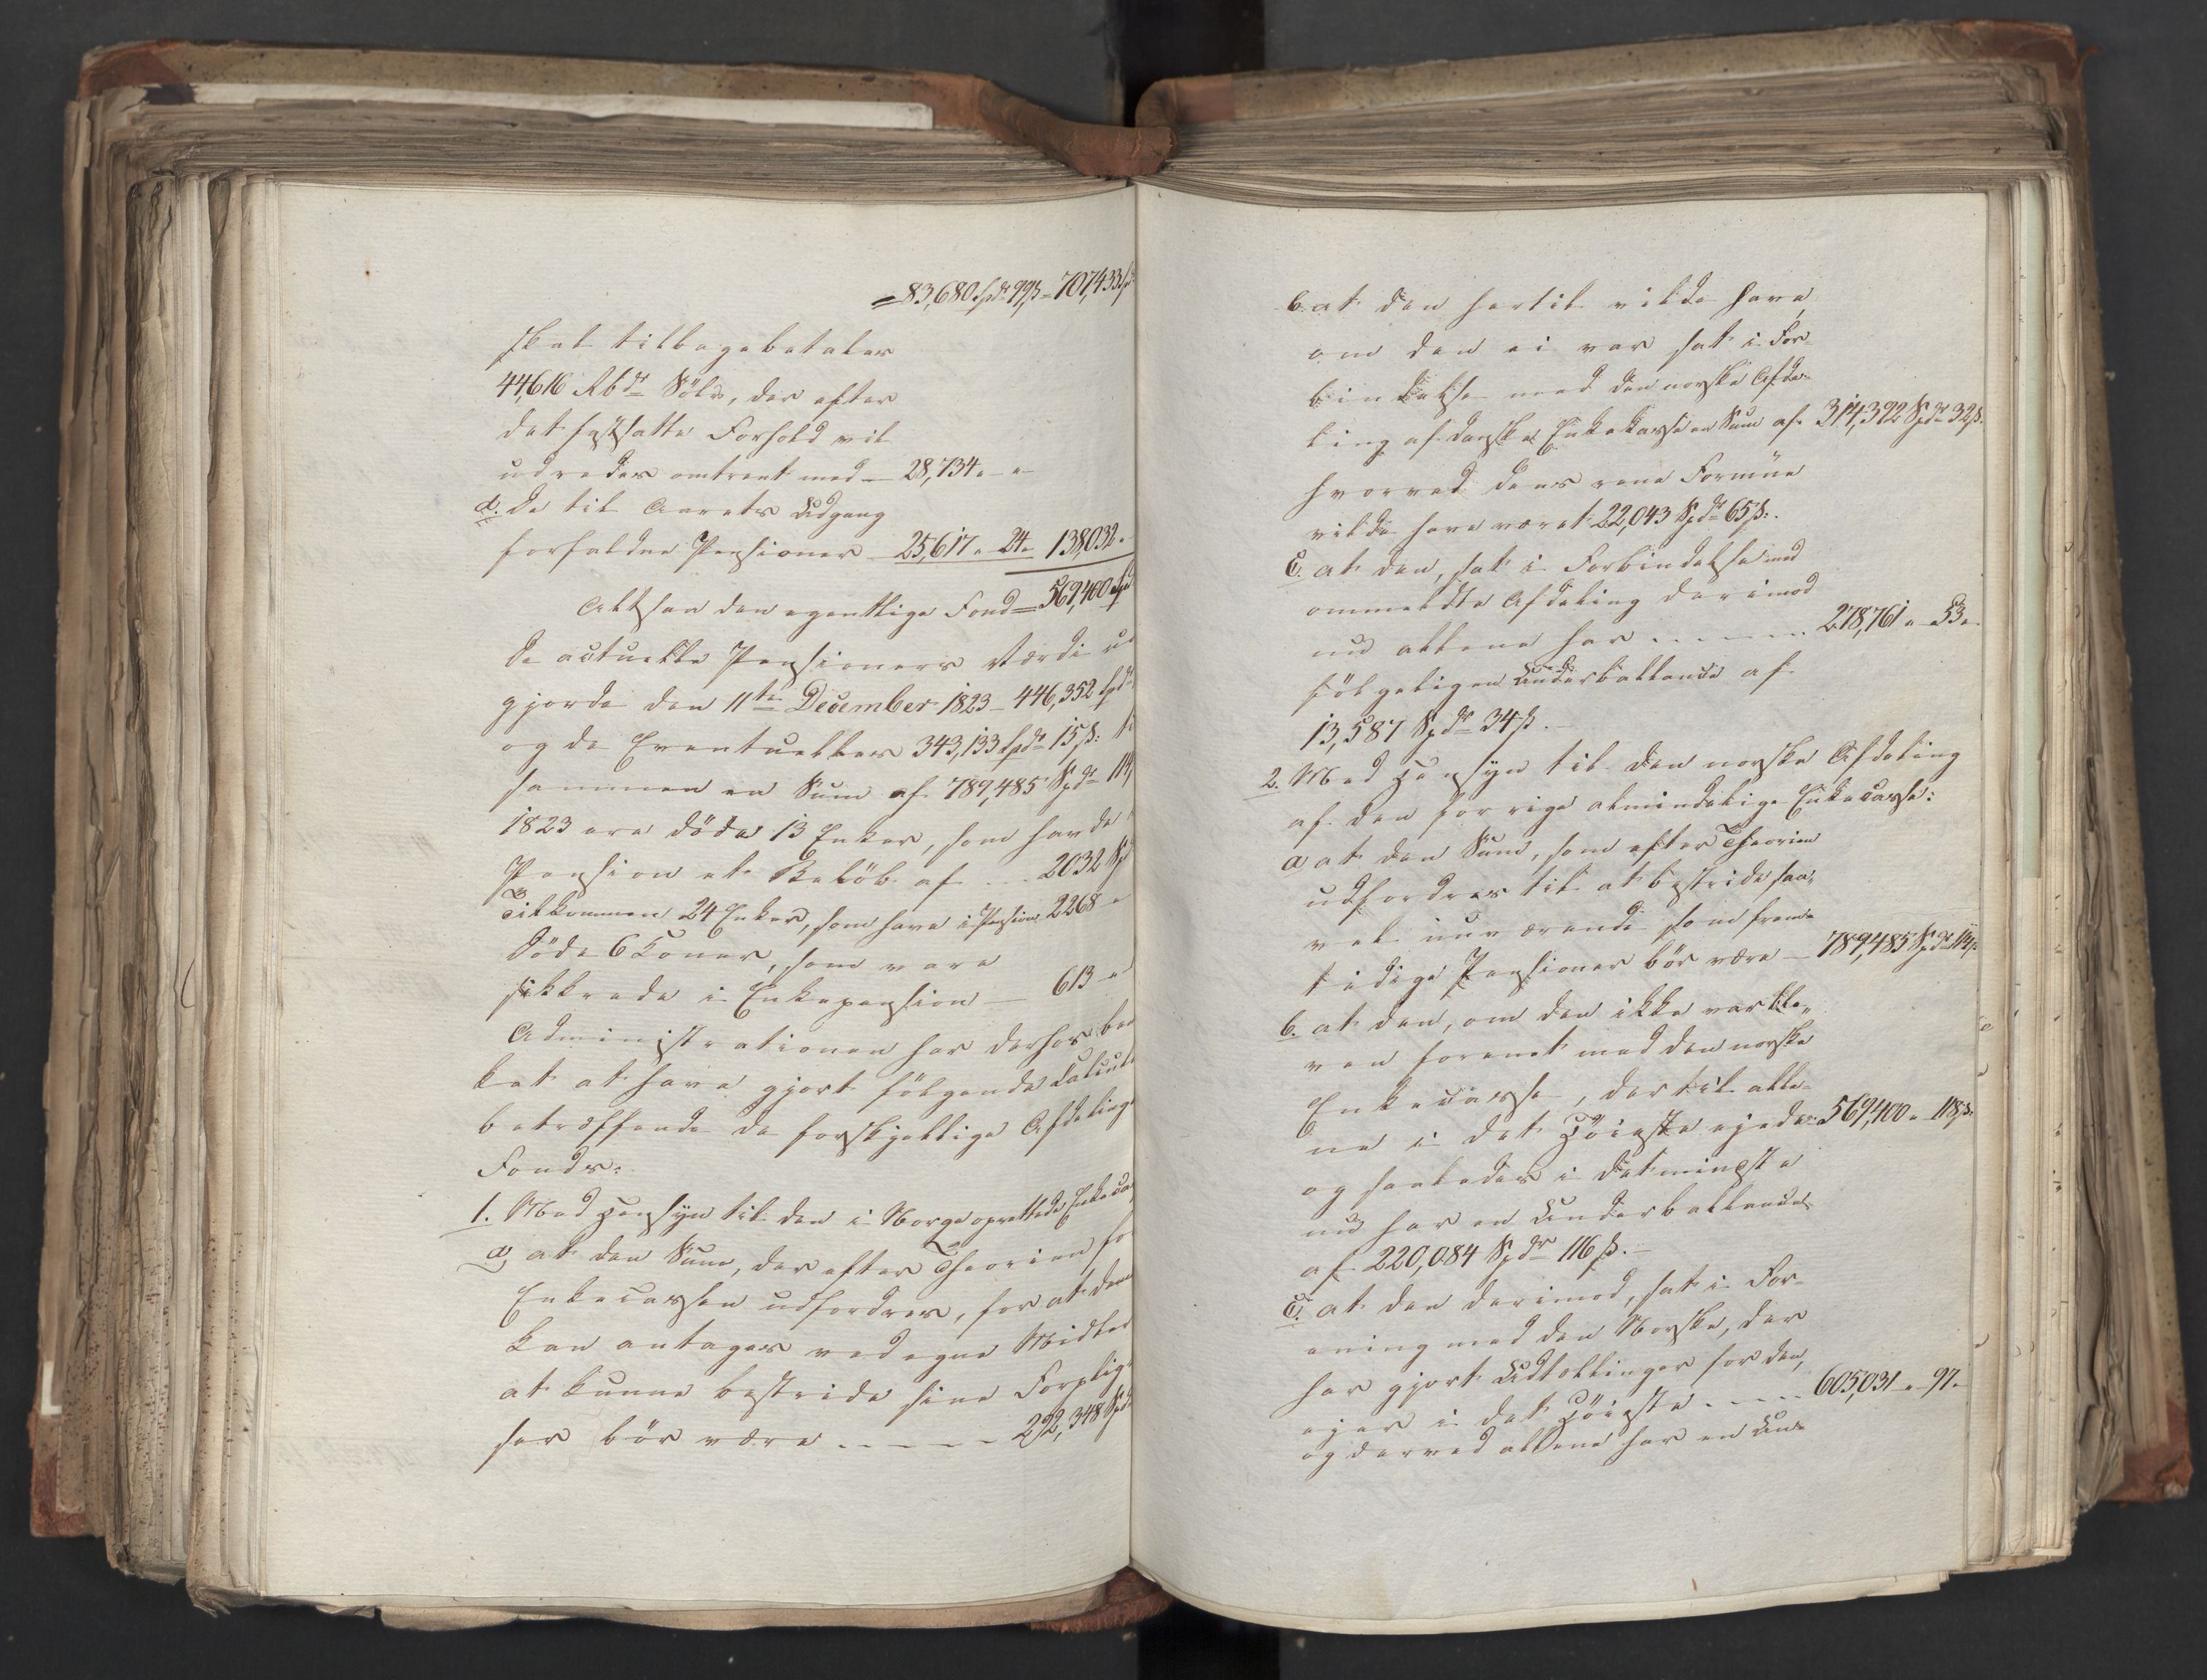 = 83,680 spdr 99ß = 707,433 sp
skal tilbagebetales
44,616 Rbdr Sölv, der efter
det fastsatte Forhold vil
udredes omtrent med — 28,734 " "
d. De til Aarets Udgang
forfaldne Pensioner — 25,617 " 24 " 138,032 "
Altsaa den egentlige Fond = 569,400 sp
De actuelle Pensioners Værdi ud
gjorde den 11te December 1823 — 446,352 spdr
og de Eventuelles 343,133 spdr 15ß: til
sammen en Sum af 789,485 Spdr 114
1823 ere döde 13 Enker, som havde i
Pension et Belöb af - - 2032 Sp
Tilkommen 24 Enker, som have i Pension 2268 "
Döde 6 Koner, som vare
sikkrede i Enkepension — 613 "
Administrationen har derhos bem
ket at have gjort fölgende Calcul
betræffende de forskjellige Afdelings
Fonds:
1. Med Hensyn til den i Norge oprettede Enkecas
a, at den Sum, der efter Theorien for
Enkecassen udfordres, for at den
kan antages ved egne Midler
at kunne bestride sine Forplig
ser bör være - - - - - 292,348 Spd
b. at den hertil vilde have,
om den ei var sat i For-
bindelse med den norske Afde-
ling af danske Enkekasse en Sum af 314,392 Spdr 32ß.
hvorved dens rene Formue
vilde have været 22,043 Spdr 65ß.
c. at den, sat i Forbindelse med
ommeldte Afdeling derimod
nu allene har - - - - - 278,761 " 53 "
fölgeligen Underballance af
13,587 Spdr 34ß. —
2. Med Hensyn til den norske Afdeling
af den forrige almindelige Enkecasse:
a at den Sum, som efter Theorien
udfordres til at bestride saa-
vel nuværende som frem-
tidige Pensioner bör være — 789,485 Spdr 114ß
b. at den, om den ikke var ble-
ven forenet med den norske
Enkecasse, dertil alle-
ne i det Höieste ejede 569,400 " 118ß.
og saaledes i det mindste
nu har en Underballance
af 220,084 Spdr 116ß. —
c. at den derimod, sat i For-
ening med den Norske, der
har gjort Udtællinger for den,
ejer i det Höieste - - - - 605,031 " 97 "
og derved allene har en Un-